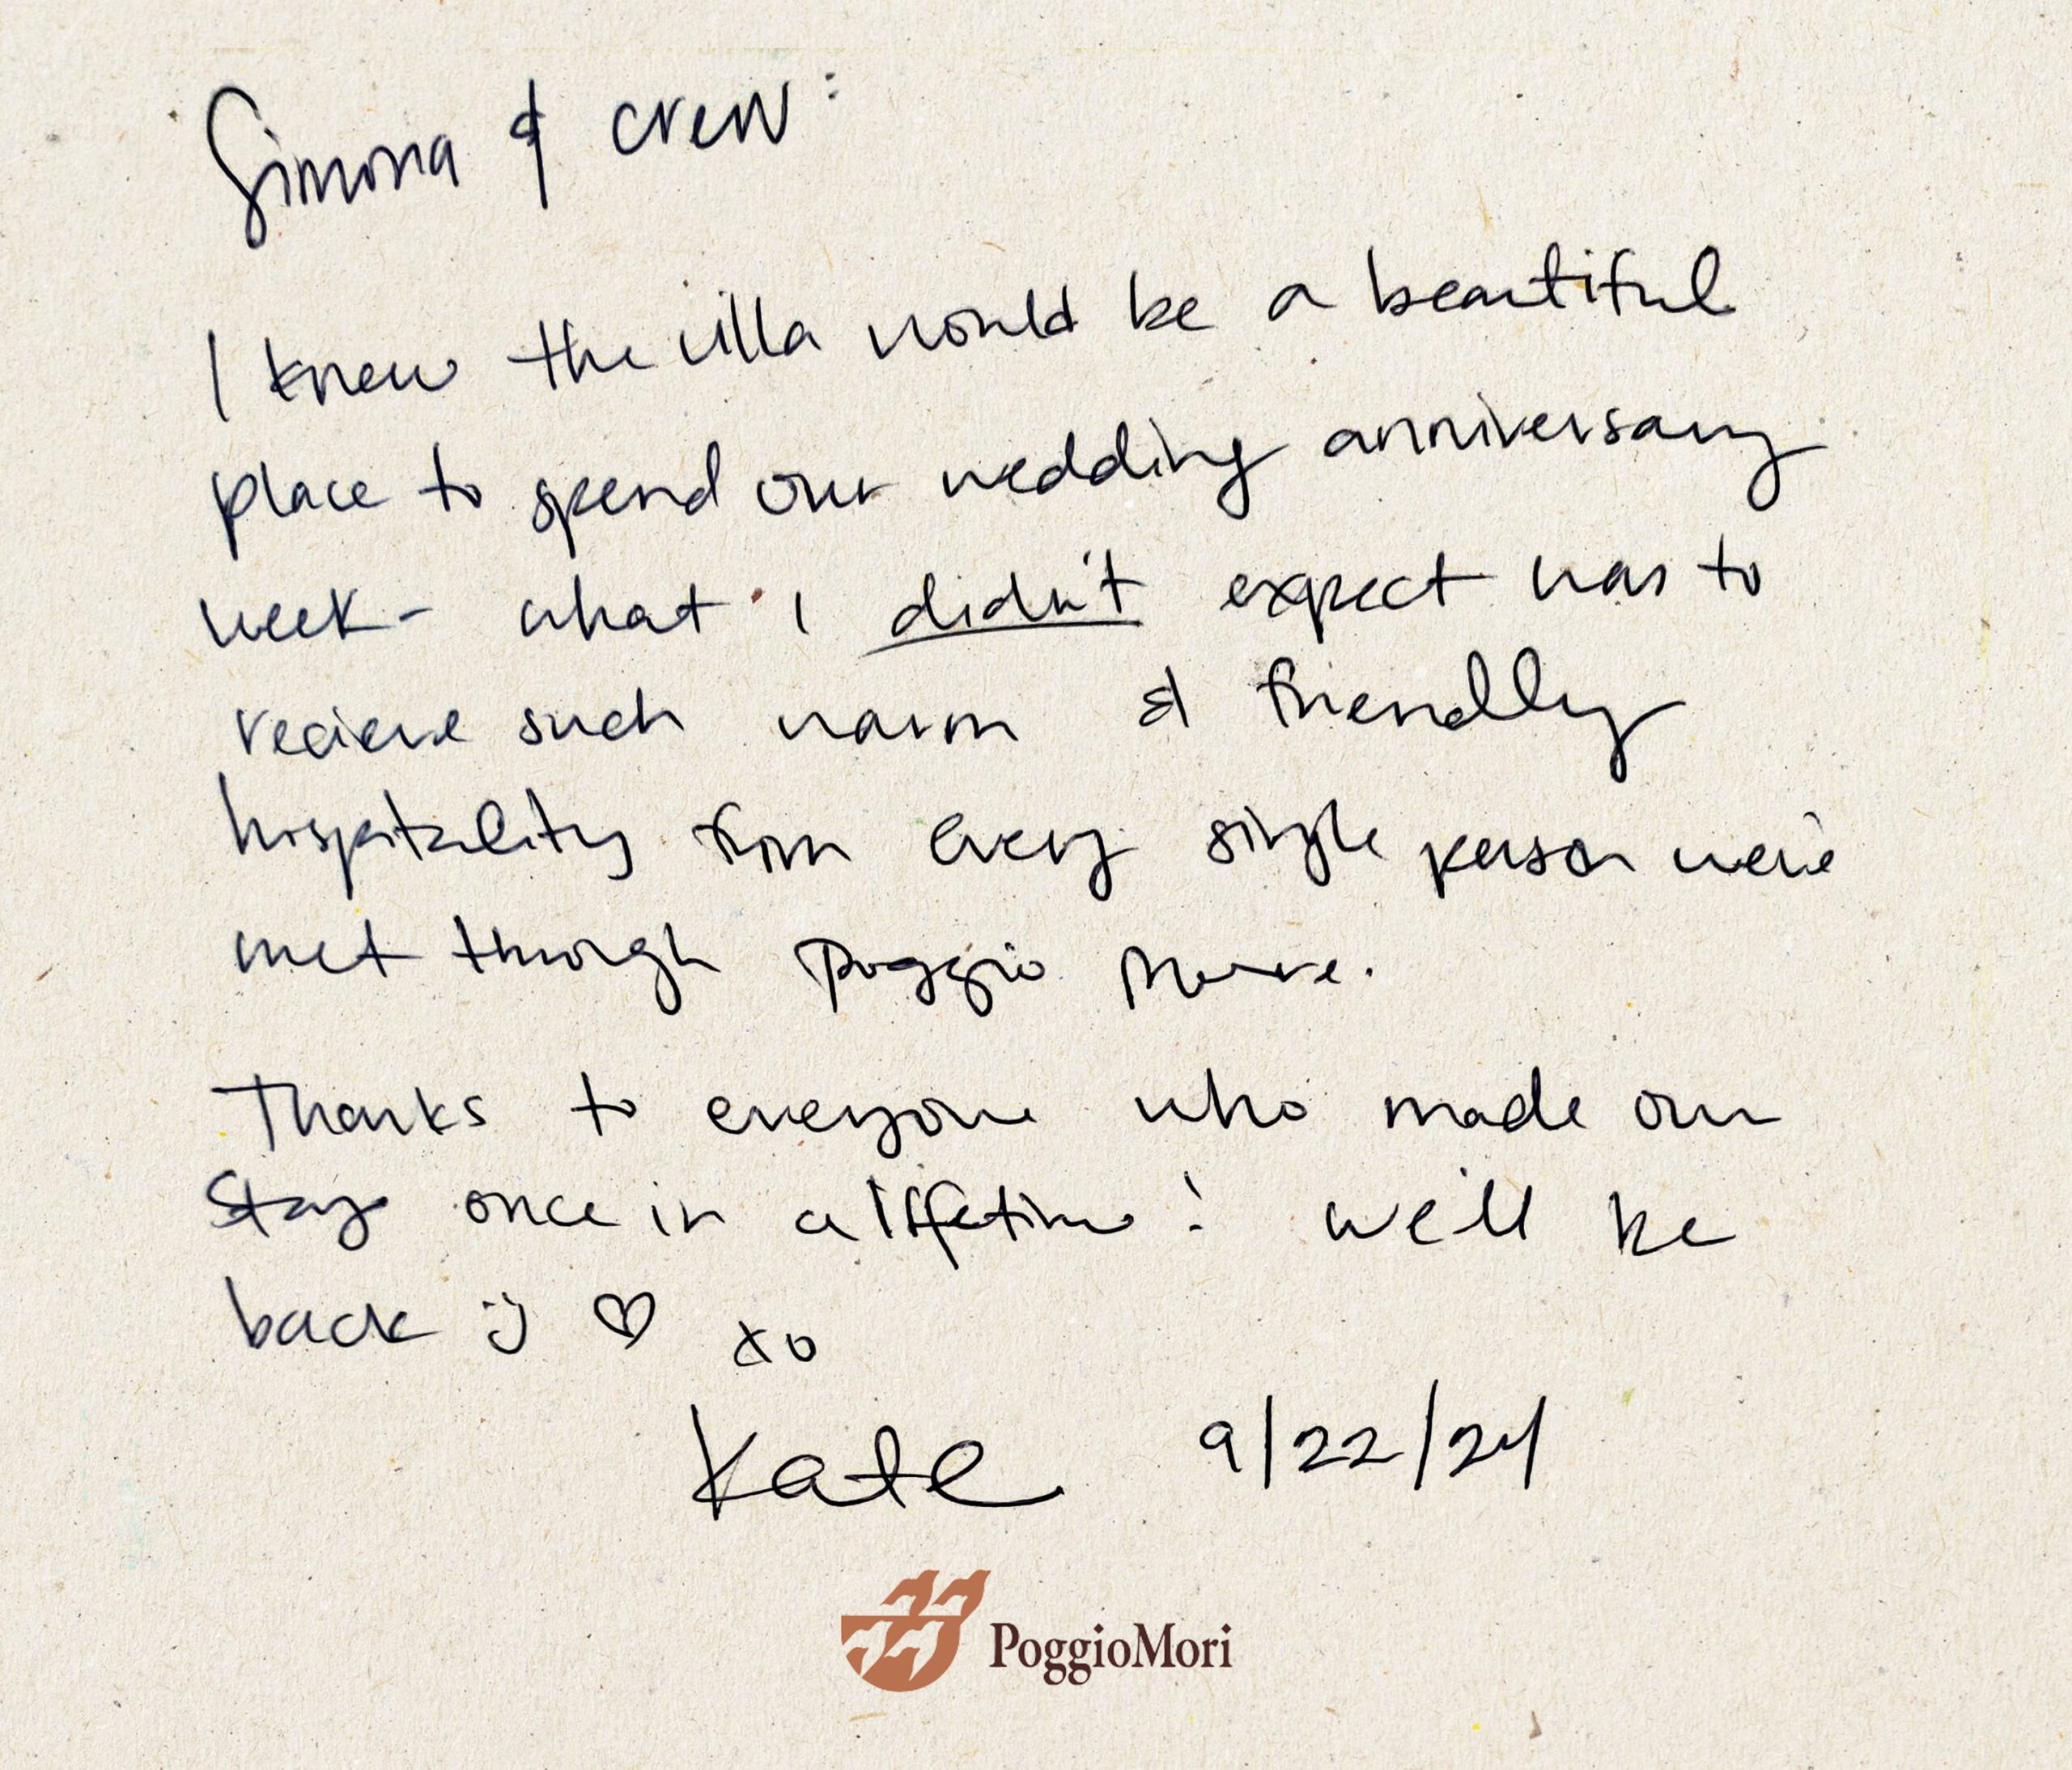 Simona & crew:
I knew the villa would be a beautiful
place to spend our wedding anniversary
week - what I didn't expect was to
recieve such warm & friendly
hospitality from every single person we've
met through Poggio
Thanks to everyone who made our
stay once in a lifetime! We'll be
back :) ♡ xo
Kate 9/22/24
PoggioMori